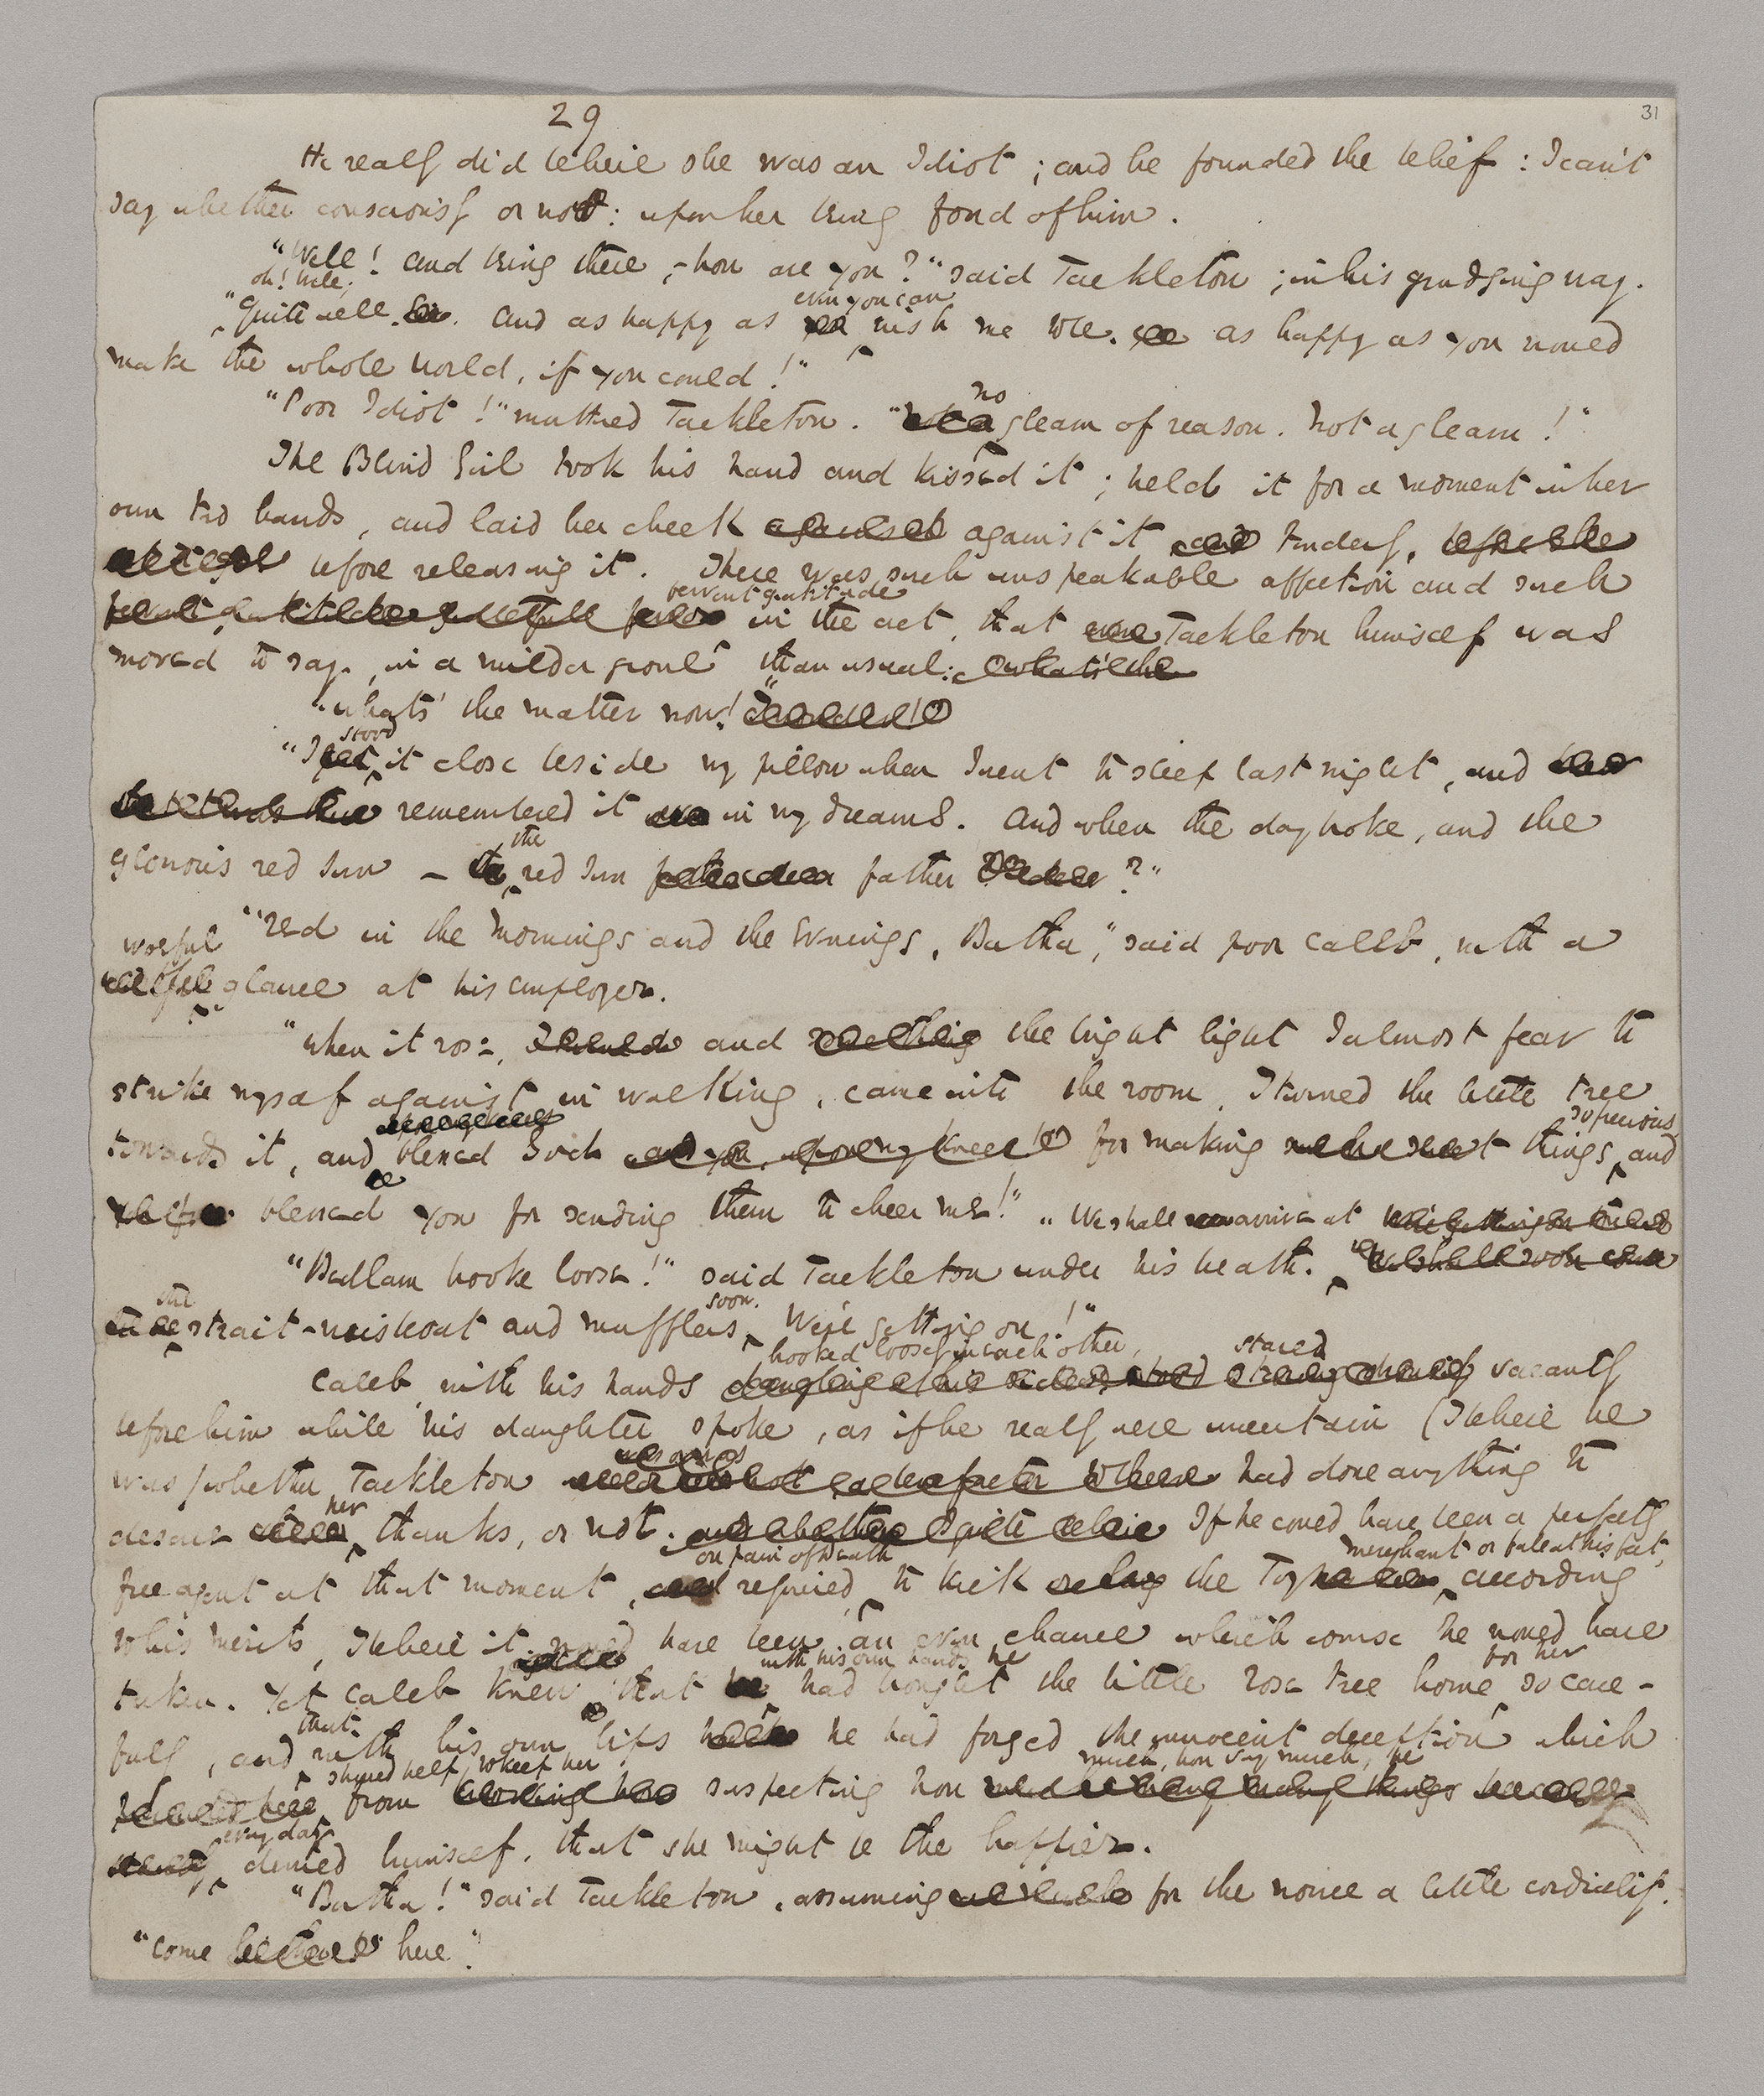 29
31
He really did believe she was an Idiot ; and he founded the belief : I can't
say whether consciously or not : upon her being fond of him .
"Well ! and being there , - how are you ? " said Tackleton ; in his grudging way .
oh ! well ;
"Quite well . And as happy as even you can wish me to be . as happy as you would
make the whole world , if you could ! "
"Poor Idiot ! " muttered Tackleton . " no gleam of reason . Not a gleam ! "
The Blind Girl took his hand and kissed it ; held it for a moment in her
own two hands , and laid her cheek against against it tenderly , before she
before releasing it . There was such unspeakable affection and such
fervent gratitude in the act , that Tackleton himself was
moved to say , in a milder growl than usual : what's the
"what's the matter now ! "
"I stood it close beside my pillow when I went to sleep last night , and
remembered it in my dreams . And when the day broke , and the
glorious red sun - the red sun father ? "
"red in the Mornings and the Evenings , Bertha , " said poor Caleb , with a
woeful glance at his employer .
"when it rose , and the bright light I almost fear to
strike myself against in walking , came into the room , I turned the little tree
towards it , and blessed Heaven for making things so precious , and
blessed you for sending them to cheer me ! " "We shall arrive at
"Bedlam broke loose ! " said Tackleton under his breath .
the strait-waistcoat and mufflers soon . We're getting on ! "
Caleb with his hands hooked loosely in each other , stared vacantly
before him while his daughter spoke , as if he really were uncertain ( I believe he
was ) whether Tackleton had done anything to
deserve her thanks , or not . If he could have been a perfectly
free agent at that moment , required , on pain of Death to kick the Toy merchant or fall at his feet , according
to his merits , I believe it would have been an even chance which course he would have
taken . Yet Caleb knew that with his own hands he had brought the little rose tree home for her so care -
fully , and that with his own lips he had forged the innocent deception which
should help to keep her from suspecting how much , how very much , he
every day denied himself , that she might be the happier .
"Bertha ! " said Tackleton , assuming for the nonce a little cordiality .
"Come here . "